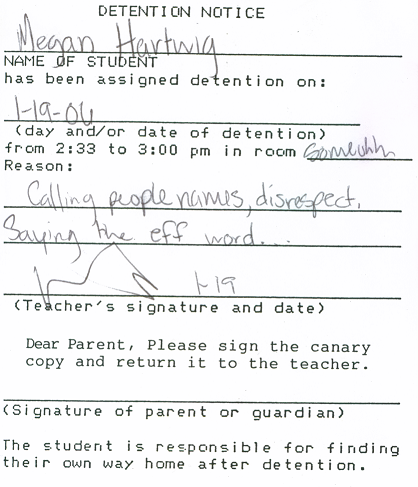 DETENTION NOTICE
Megan Hartwig
NAME OF STUDENT
has been assigned detention on:
1-19-06
(day and/or date of detention)
from 2:33 to 3:00 pm in room
Reason:
Calling people names, disrespect.
Saying the eff word...
1-19
(Teacher's signature and date)
Dear Parent, Please sign the canary
copy and return it to the teacher.
(Signature of parent or guardian)
The student is responsible for finding
their own way home after detention.